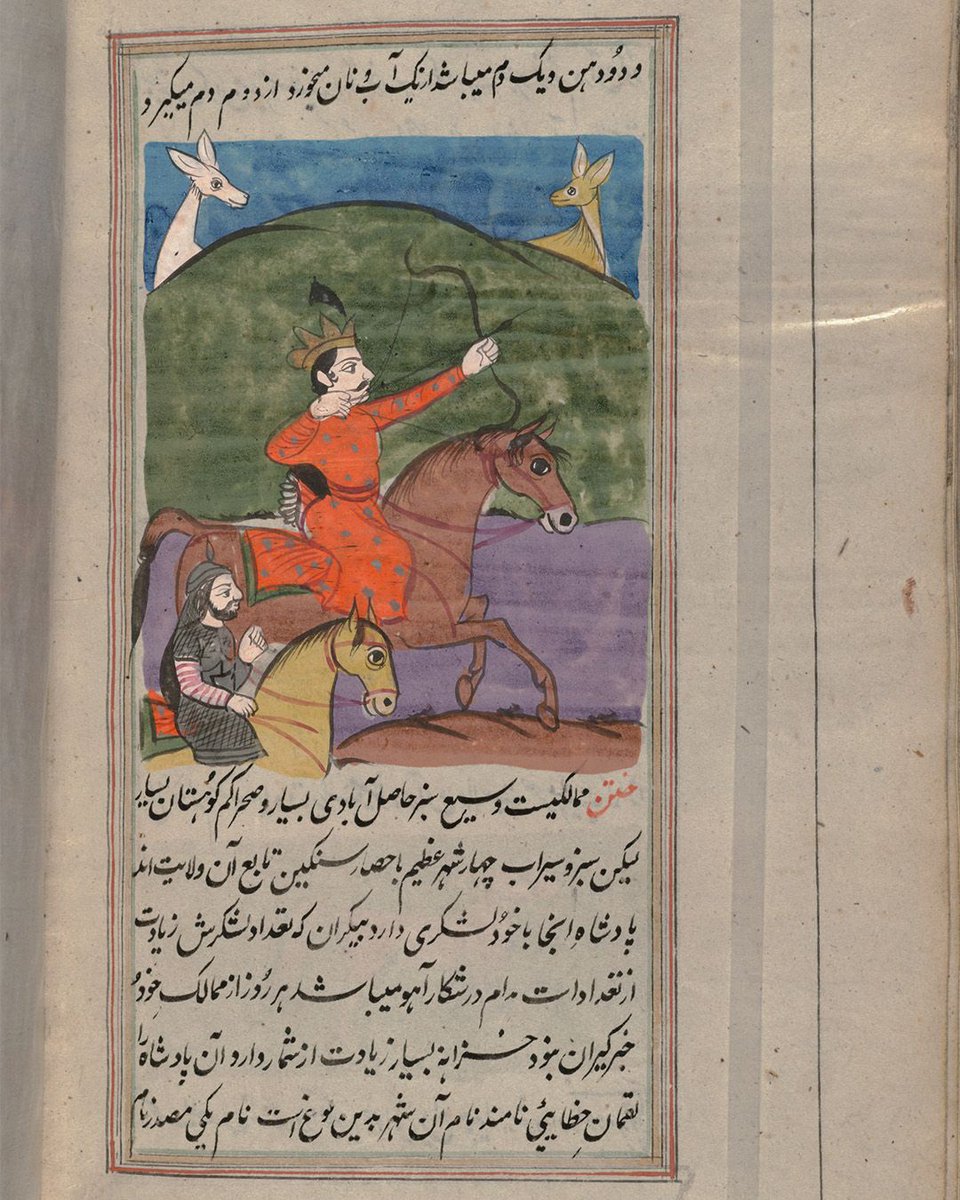 و دو دهن و یک دم میباشد از یک آب و نان میخورد از دوم دم میگیرد و
ختن ممالکیست وسیع سبز حاصل آبادی بسیار و صحرا کم کوهستان بسیار
لیکن سبز و سیراب چهار شهر عظیم با حصار سنگین تابع آن ولایت اند
پادشاه اینجا با خود لشکری دارد بیکران که تعداد لشکرش زیادت
از تعداد است مدام در شکار آهو میباشد هر روز از ممالک خود
خبرگیران بود خزانه بسیار زیادت از شمار دارد و آن پادشاه را
لقمان خطایی نامند نام آن شهر بدین نوع است نام یکی نام